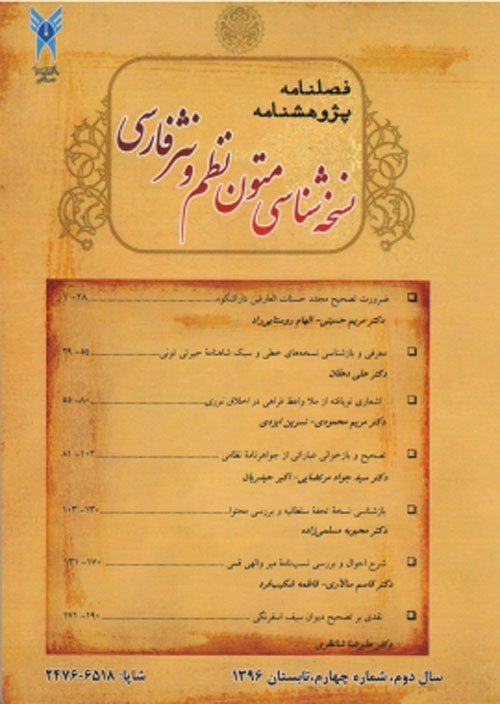 فصلنامه
پژوهشنامه
نسخه‌شناسی متون نظم و نثر فارسی
ضرورت تصحیح مجدد حسنات العارفین داراشکوه ........ ۲۸-۷
دکتر مریم حسینی- الهام روستایی‌راد
معرفی و بازشناسی نسخه‌های خطی و سبک شاهنامهٔ حیرتی تونی ........ ۵۴-۲۹
دکتر علی دهقان
اشعاری نویافته از ملا واعظ فراهی در اخلاق نوری ........ ۸۰-۵۵
دکتر مریم محمودی- نسرین ایزدی
تصحیح و بازخوانی عباراتی از جواهرنامهٔ نظامی ........ ۱۰۲-۸۱
دکتر سید جواد مرتضایی- اکبر حیدریان
بازشناسی نسخهٔ تحفهٔ سلطانیه و بررسی محتوا ........ ۱۳۰-۱۰۳
دکتر محبوبه مسلمی‌زاده
شرح احوال و بررسی نسب‌نامهٔ میر والهی قمی ........ ۱۷۰-۱۳۱
دکتر قاسم سالاری- فاطمه شکیب‌فرد
نقدی بر تصحیح دیوان سیف اسفرنگی ........ ۱۹۰-۱۷۱
دکتر علیرضا شانظری
سال دوم، شماره چهارم، تابستان ۱۳۹۶
شاپا: ۶۵۱۸-۲۴۷۶